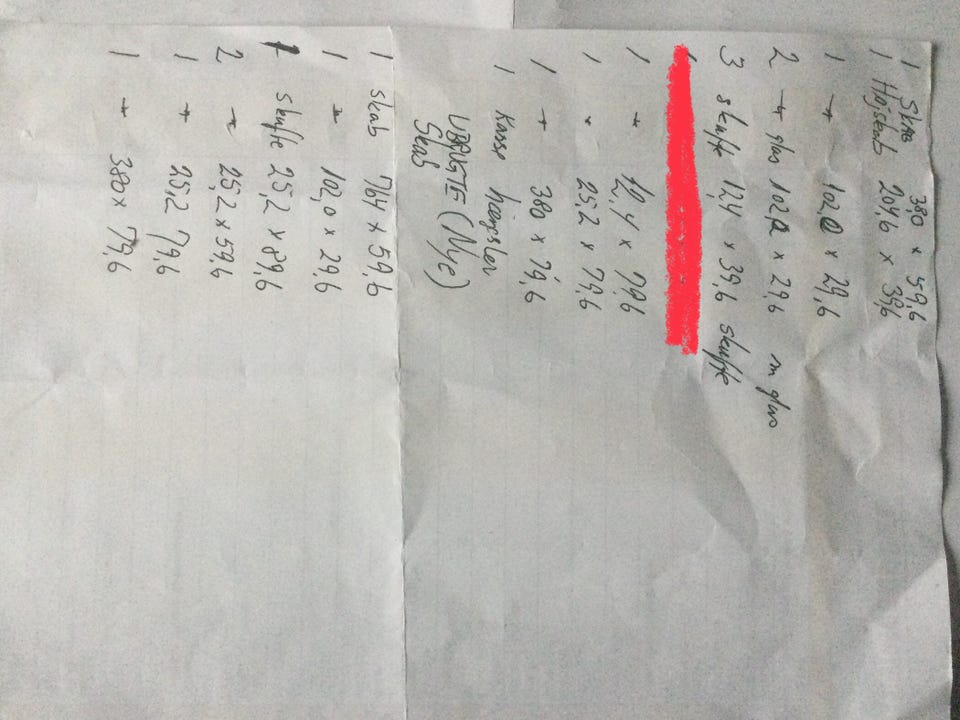 1 Skab 38,0 × 59,6
1 Højskab 204,6 × 39,6
1 → 102,0 × 29,6
2 → glas 102,0 × 29,6 m glas
3 skuffe 12,4 × 39,6 skuffe
1 → 12,4 × 79,6
1 " 25,2 × 79,6
1 → 380 × 79,6
1 Kasse hængsler
UBRUGTE (Nye)
Skab
1 skab 764 × 59,6
1 → 102,0 × 29,6
1 skuffe 25,2 × 89,6
2 → 25,2 × 59,6
1 → 25,2 79,6
1 → 380 × 79,6